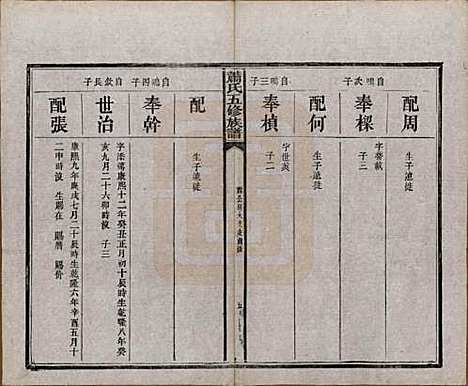 配周
自鳴次子
奉樑
生子遷徙
配何
生子遷徙
自鳴三子
奉楨
字世
子二
蕭氏五修族譜
配
生子遷徙
自鳴四子
奉幹
自欽長子
世治
字 康熙十二年癸丑正月初十辰時生乾隆八年癸
亥九月二十六卯時沒 子三
配張
康熙九年庚戌七月二十辰時生乾隆六年辛酉五月十
二申時沒 生賜 賜 賜